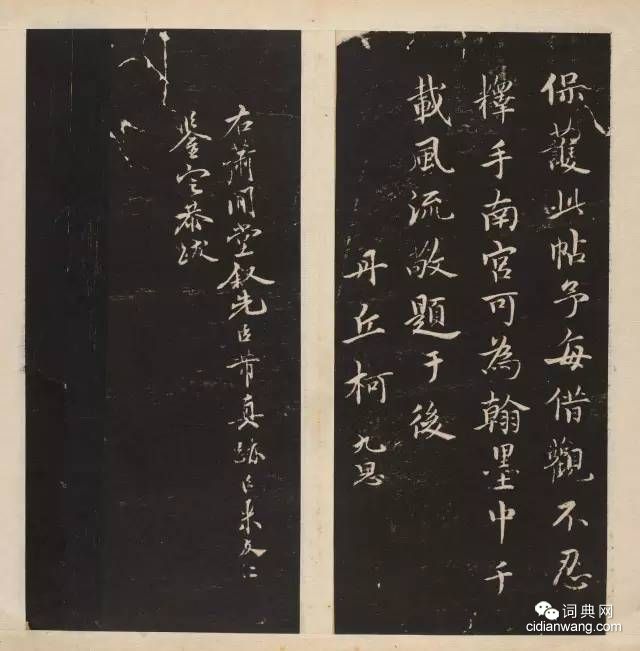 保護此帖予每借觀不忍
釋手南宮可為翰墨中千
載風流敬題于後
丹丘柯九思
右蕭閒堂叙先臣芾真跡臣米友仁
鑒定恭跋
词典网
cidianwang.com